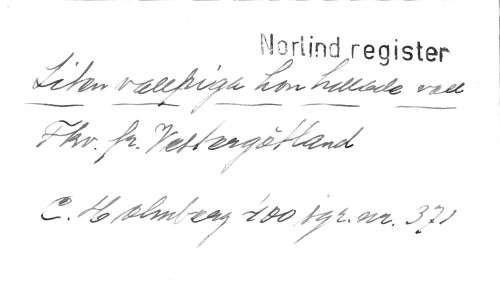 Norlind register
Liten vallpiga hon hullade vall
Fkv. fr. Vestergötland
C. Holmberg 100 sgr. nr. 371